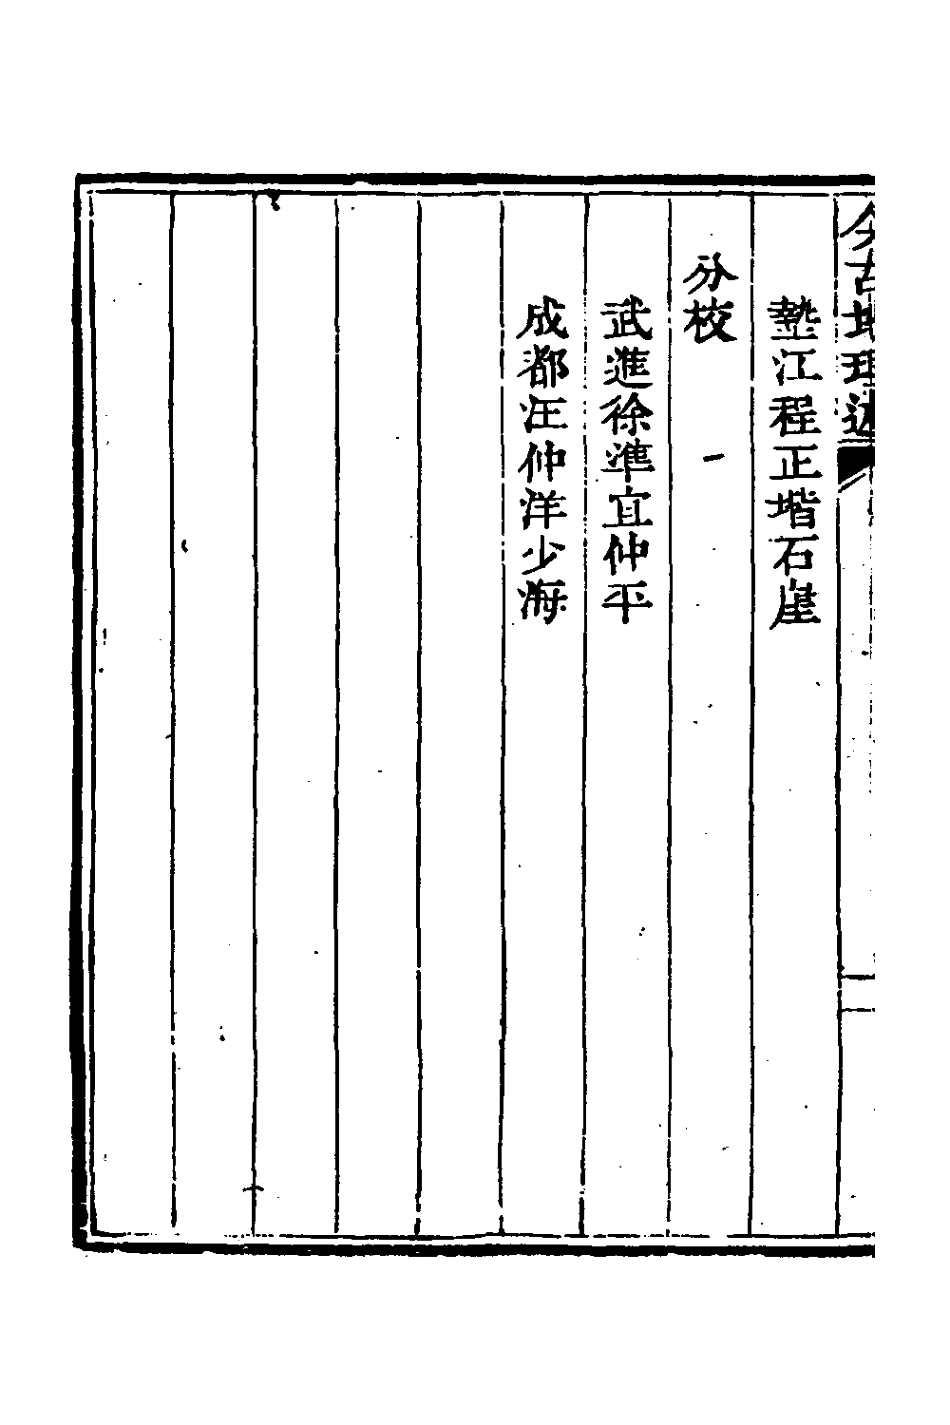 今古地理述
墊江程正堦石崖
分校
武進徐準宜仲平
成都汪仲洋少海